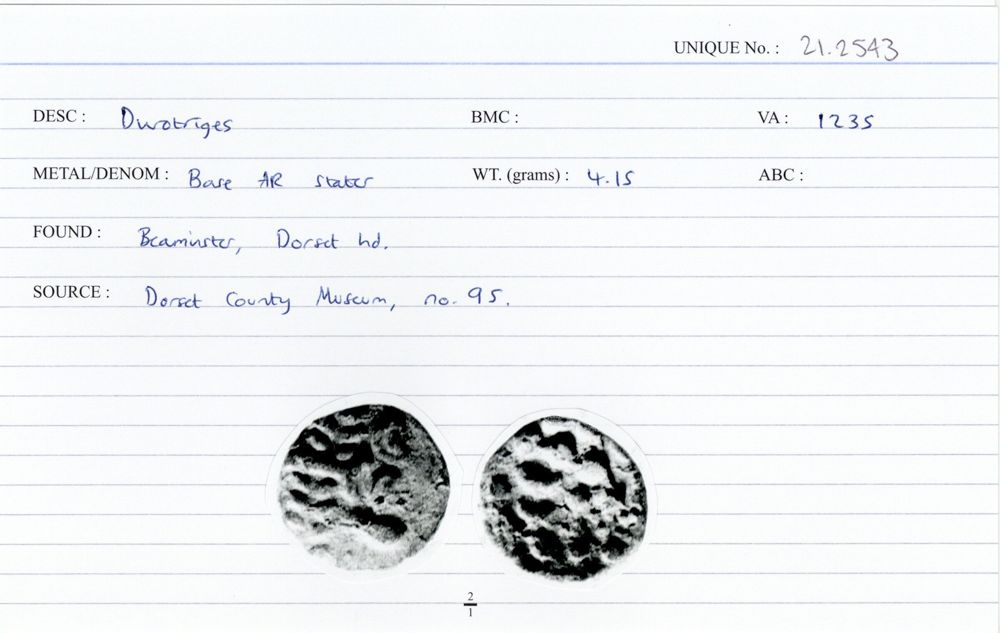 UNIQUE No. : 21.2543
DESC : Durotriges BMC : VA : 1235
METAL/DENOM : Base AR stater WT. (grams) : 4.15 ABC :
FOUND : Beaminster, Dorset hd.
SOURCE : Dorset County Museum, no. 95.
2
1